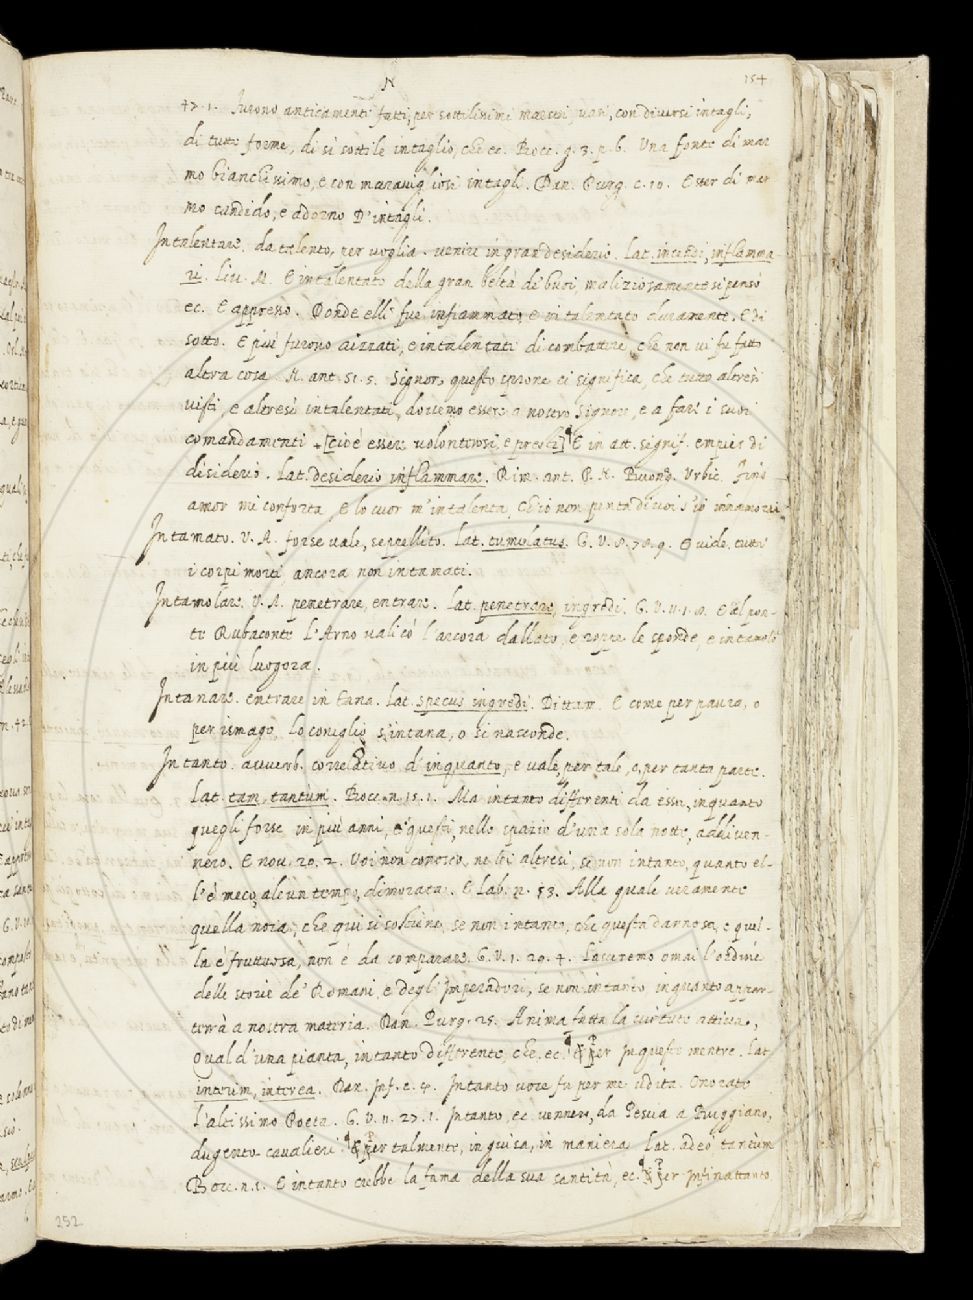 N
154
47. 1. Furono anticamente fatti, per sottilissimi maestri, vasi, con diversi intagli,
di tutte forme, di sì sottile intaglio, che ec. Bocc. g. 3. p. 6. Una fonte di mar
mo bianchissimo, e con maravigliosi intagli. Dan. Purg. c. 10. Esser di mar
mo candido, e adorno D'intagli.
Intalentare. da talento, per voglia. venire in gran desiderio. Lat. incendi, inflamma
ri. Liv. M. E intalentato della gran beltà di buoi, maliziosamente si pensò
ec. E appresso. Donde elli fue infiammato e intalentato duramente. E di
sotto. E più furono aizzati, e intalentati di combattere, che non vi fu fatto
altra cosa. N. ant. 51. 5. Signor, questo sprone ci significa, che tutto altresì
visti, e altresì intalentati, dovemo essere a nostro Signore, e a fare i suoi
comandamenti [cioè essere volonterosi, e presti] E in att. signif. empier di
disiderio. Lat. desiderio inflammare. Rim. ant. P. N. Buond. Urbic. Fino
amor mi conforta, E lo cuor m'intalenta, ch'io non punta di voi s'io innamori
Intamato. V. A. forse vale, seppellito. Lat. tumulatus. G. V. 8. 78. 9. E vide, tutti
i corpi morti ancora non intamati.
Intamolare. V. A. penetrare, entrare. Lat. penetrare, ingredi. G. V. 11. 1. 8. E al pon-
te Rubaconte l'Arno valicò l'arcora dallato, e roppe le sponde, e intamolò
in più luogora.
Intanare. entrare in tana. Lat. specus ingredi. Dittam. E come per paura, o
per ismago, Lo coniglio s'intana, o si nasconde.
Intanto. avverb. correlativo d'inquanto, e vale, per tale, e, per tanta parte.
Lat. tam, tantùm. Bocc. n. 15. 1. Ma intanto differenti da essa, inquanto
quegli forse in più anni, e questi, nello spazio d'una sola notte, addiven-
nero. E nov. 20. 2. Voi non conosco, ne lei altresì, se non intanto, quanto el-
l'è meco, alcun tempo, dimorata. E Lab. n. 53. Alla quale veramente
quella noia, che qui si sostiene, se non intanto, che questa dannosa, e quel-
la è fruttuosa, non è da comparare. G. V. 1. 29. 4. Lasceremo omai l'ordine
delle storie de' Romani, e degli Imperadori, se non intanto inquanto appar-
terrà a nostra materia. Dan. Purg. 25. Anima fatta la virtute attiva,
Qual d'una pianta, intanto differente, che. ec. & Per In questo mentre. Lat.
interim, interea. Dan. Inf. c. 4. Intanto voce fu per me udita. Onorate
l'altissimo Poeta. G. V. 11. 27. 1. Intanto, ec. vennero, da Pescia a Buggiano,
dugento cavalieri. & Per talmente, in guisa, in maniera. Lat. adeò tantùm
Bocc. n. 1. E intanto crebbe la fama della sua santità, ec. & Per Infinattanto
252